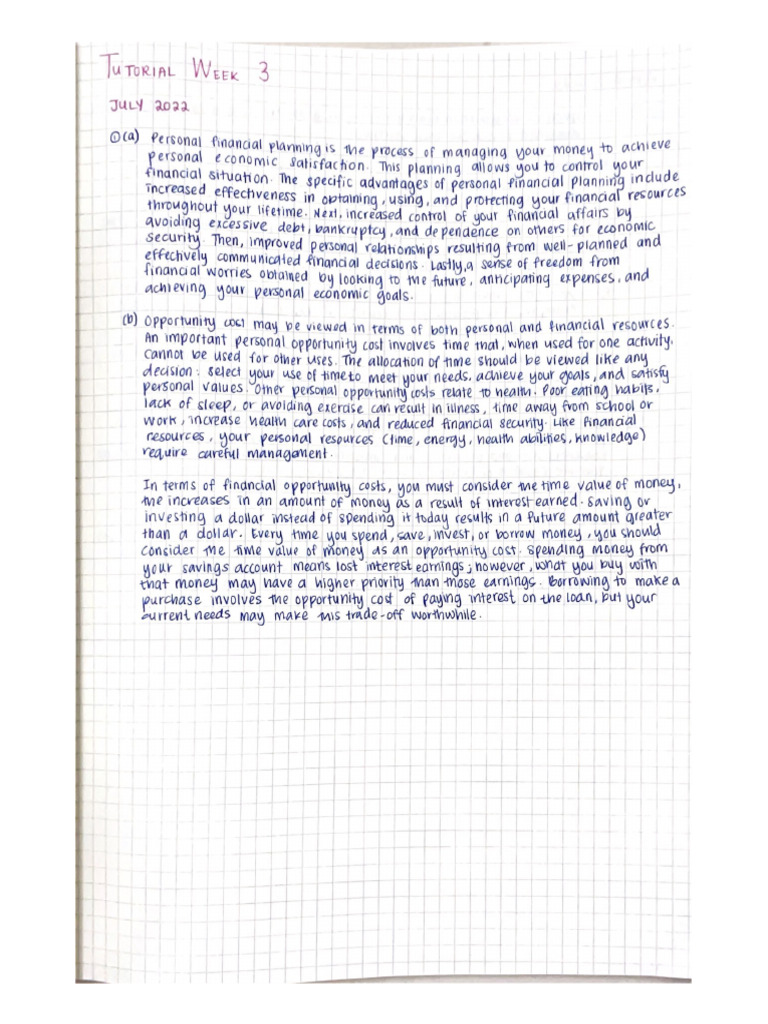 TUTORIAL WEEK 3
JULY 2022
① (a) Personal financial planning is the process of managing your money to achieve
personal economic satisfaction. This planning allows you to control your
financial situation. The specific advantages of personal financial planning include
increased effectiveness in obtaining, using, and protecting your financial resources
throughout your lifetime. Next, increased control of your financial affairs by
avoiding excessive debt, bankruptcy, and dependence on others for economic
security. Then, improved personal relationships resulting from well-planned and
effectively communicated financial decisions. Lastly, a sense of freedom from
financial worries obtained by looking to the future, anticipating expenses, and
achieving your personal economic goals.
(b) Opportunity cost may be viewed in terms of both personal and financial resources.
An important personal opportunity cost involves time that, when used for one activity,
cannot be used for other uses. The allocation of time should be viewed like any
decision: select your use of time to meet your needs, achieve your goals, and satisfy
personal values. Other personal opportunity costs relate to health. Poor eating habits,
lack of sleep, or avoiding exercise can result in illness, time away from school or
work, increase health care costs, and reduced financial security. Like financial
resources, your personal resources (time, energy, health abilities, knowledge)
require careful management.
In terms of financial opportunity costs, you must consider the time value of money,
the increases in an amount of money as a result of interest earned. Saving or
investing a dollar instead of spending it today results in a future amount greater
than a dollar. Every time you spend, save, invest, or borrow money, you should
consider the time value of money as an opportunity cost. Spending money from
your savings account means lost interest earnings; however, what you buy with
that money may have a higher priority than those earnings. Borrowing to make a
purchase involves the opportunity cost of paying interest on the loan, but your
current needs may make this trade-off worthwhile.